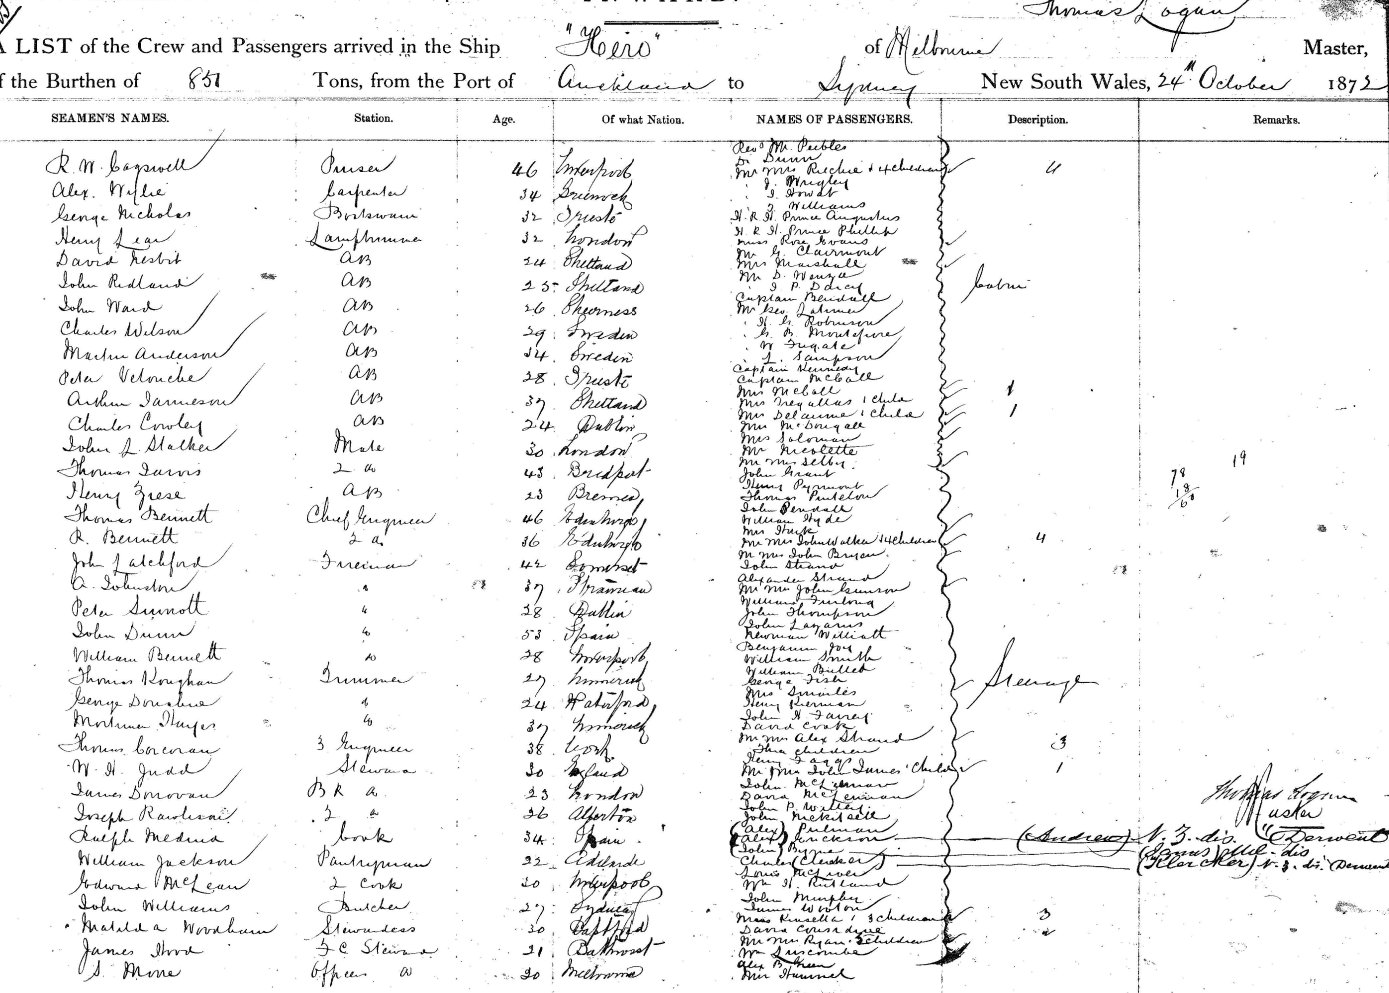 Thomas Logan
A LIST of the Crew and Passengers arrived in the Ship "Hero" of Melbourne Master,
f the Burthen of 851 Tons, from the Port of Auckland to Sydney New South Wales, 24th October 1872
SEAMEN'S NAMES. Station. Age. Of what Nation. NAMES OF PASSENGERS. Description. Remarks.
R. W. Cagswell Purser 46 Liverpool
Alex. Wylie Carpenter 34 Greenock
George Nicholas Boatswain 32 Trieste
Henry Lear Lamptrimmer 32 London
David Nesbit AB 24 Shetland
John Ridland AB 25 Shetland
John Ward AB 26 Sheerness
Charles Wilson AB 29 Sweden
Martin Anderson AB 34 Sweden
Peter AB 28 Trieste
Arthur Jamieson AB 37 Shetland
Charles Cowley AB 24 Dublin
John J Stalker Mate 30 London
Thomas Jarvis 2 do 43 Bridport
Henry AB 23 Bremen
Thomas Bennett Chief Engineer 46 Edinburgh
R. Bennett 2 do 36 Edinburgh
John Latchford Fireman 42 Somerset
A. Johnston " 37 Stranraer
Peter Sinnott " 28 Dublin
John Dunn " 53 Spain
William Bennett " 28 Liverpool
Thomas Trimmer 27 Limerick
George Donohue " 24 Waterford
Mortimer Hayes " 37 Limerick
Thomas Corcoran 3 Engineer 38 Cork
W. H. Judd Steward 30 England
James Donovan 23 London
Joseph 2 do 26
Ralph Medina Cook 34 Spain
William Jackson Pantryman 22 Adelaide
Edward McLean 2 Cook 20 Liverpool
John Williams Butcher 27 Sydney
Matilda Woodham Stewardess 30 Deptford
James Hood F C Steward 21 Bathurst
S. More Officers do 20 Melbourne
Revd Mr Peebles
Dr Dunn
Mr Mrs Ritchie & 4 children 4
" J. Wrigley
" J. Howat
" J. Williams
H. R. H. Prince Augustus
H. R. H. Prince Phillip
Miss Rose Evans
Mr G. Clairmont
Mrs Marshall
Mr D.
" J. P. Darcy
Captain Bendall
Mr Geo. Latimer
" H. G. Robinson
" G. B. Montefiore
" W Fugate
" L. Sampson
Captain Kennedy
Captain McCall
Mrs McCall
Mrs 1 child 1
Mrs Delaunne 1 child 1
Mrs McDougall
Mrs Soloman
Mr Nicolette
Mr Mrs Selby
Cabin
John Grant
Henry Pyrmont
Thomas
John Pendall
William Hyde
Mrs
Mr Mrs John Walker & 4 children 4
Mr Mrs John Bryan
John Strand
Alexander Strand
Mr Mrs John Gunson
William Furlong
John Thompson
John Lazarus
Newman Williatt
Benjamin Joy
William Smith
William Bullett
George Fish
Mrs Smailes
Henry Kiernan
John H Farrey
David Cook
Mr Mrs Alex Strand 3
Three children
Henry
Mr Mrs John James 1 child 1
John McLennan
David McLennan
John P. Willey
John
(Alex) Pulman
(Alex) Erickson (Andrew) N. Z. dis. "Derwent"
John Byrne (James) dis
Charles (Clecker) (Klercker) N. Z. dis. Derwent
Louis McLiver
Wm H. Rutland
John Murphy
James Wooton
Miss Kinsella & 3 children 3
David Considine
Mr Mrs Ryan 2 children 2
Wm Luscombe
Alex B Green
Mrs Hummel
Steerage
19
78
18
Thomas Logan
Master